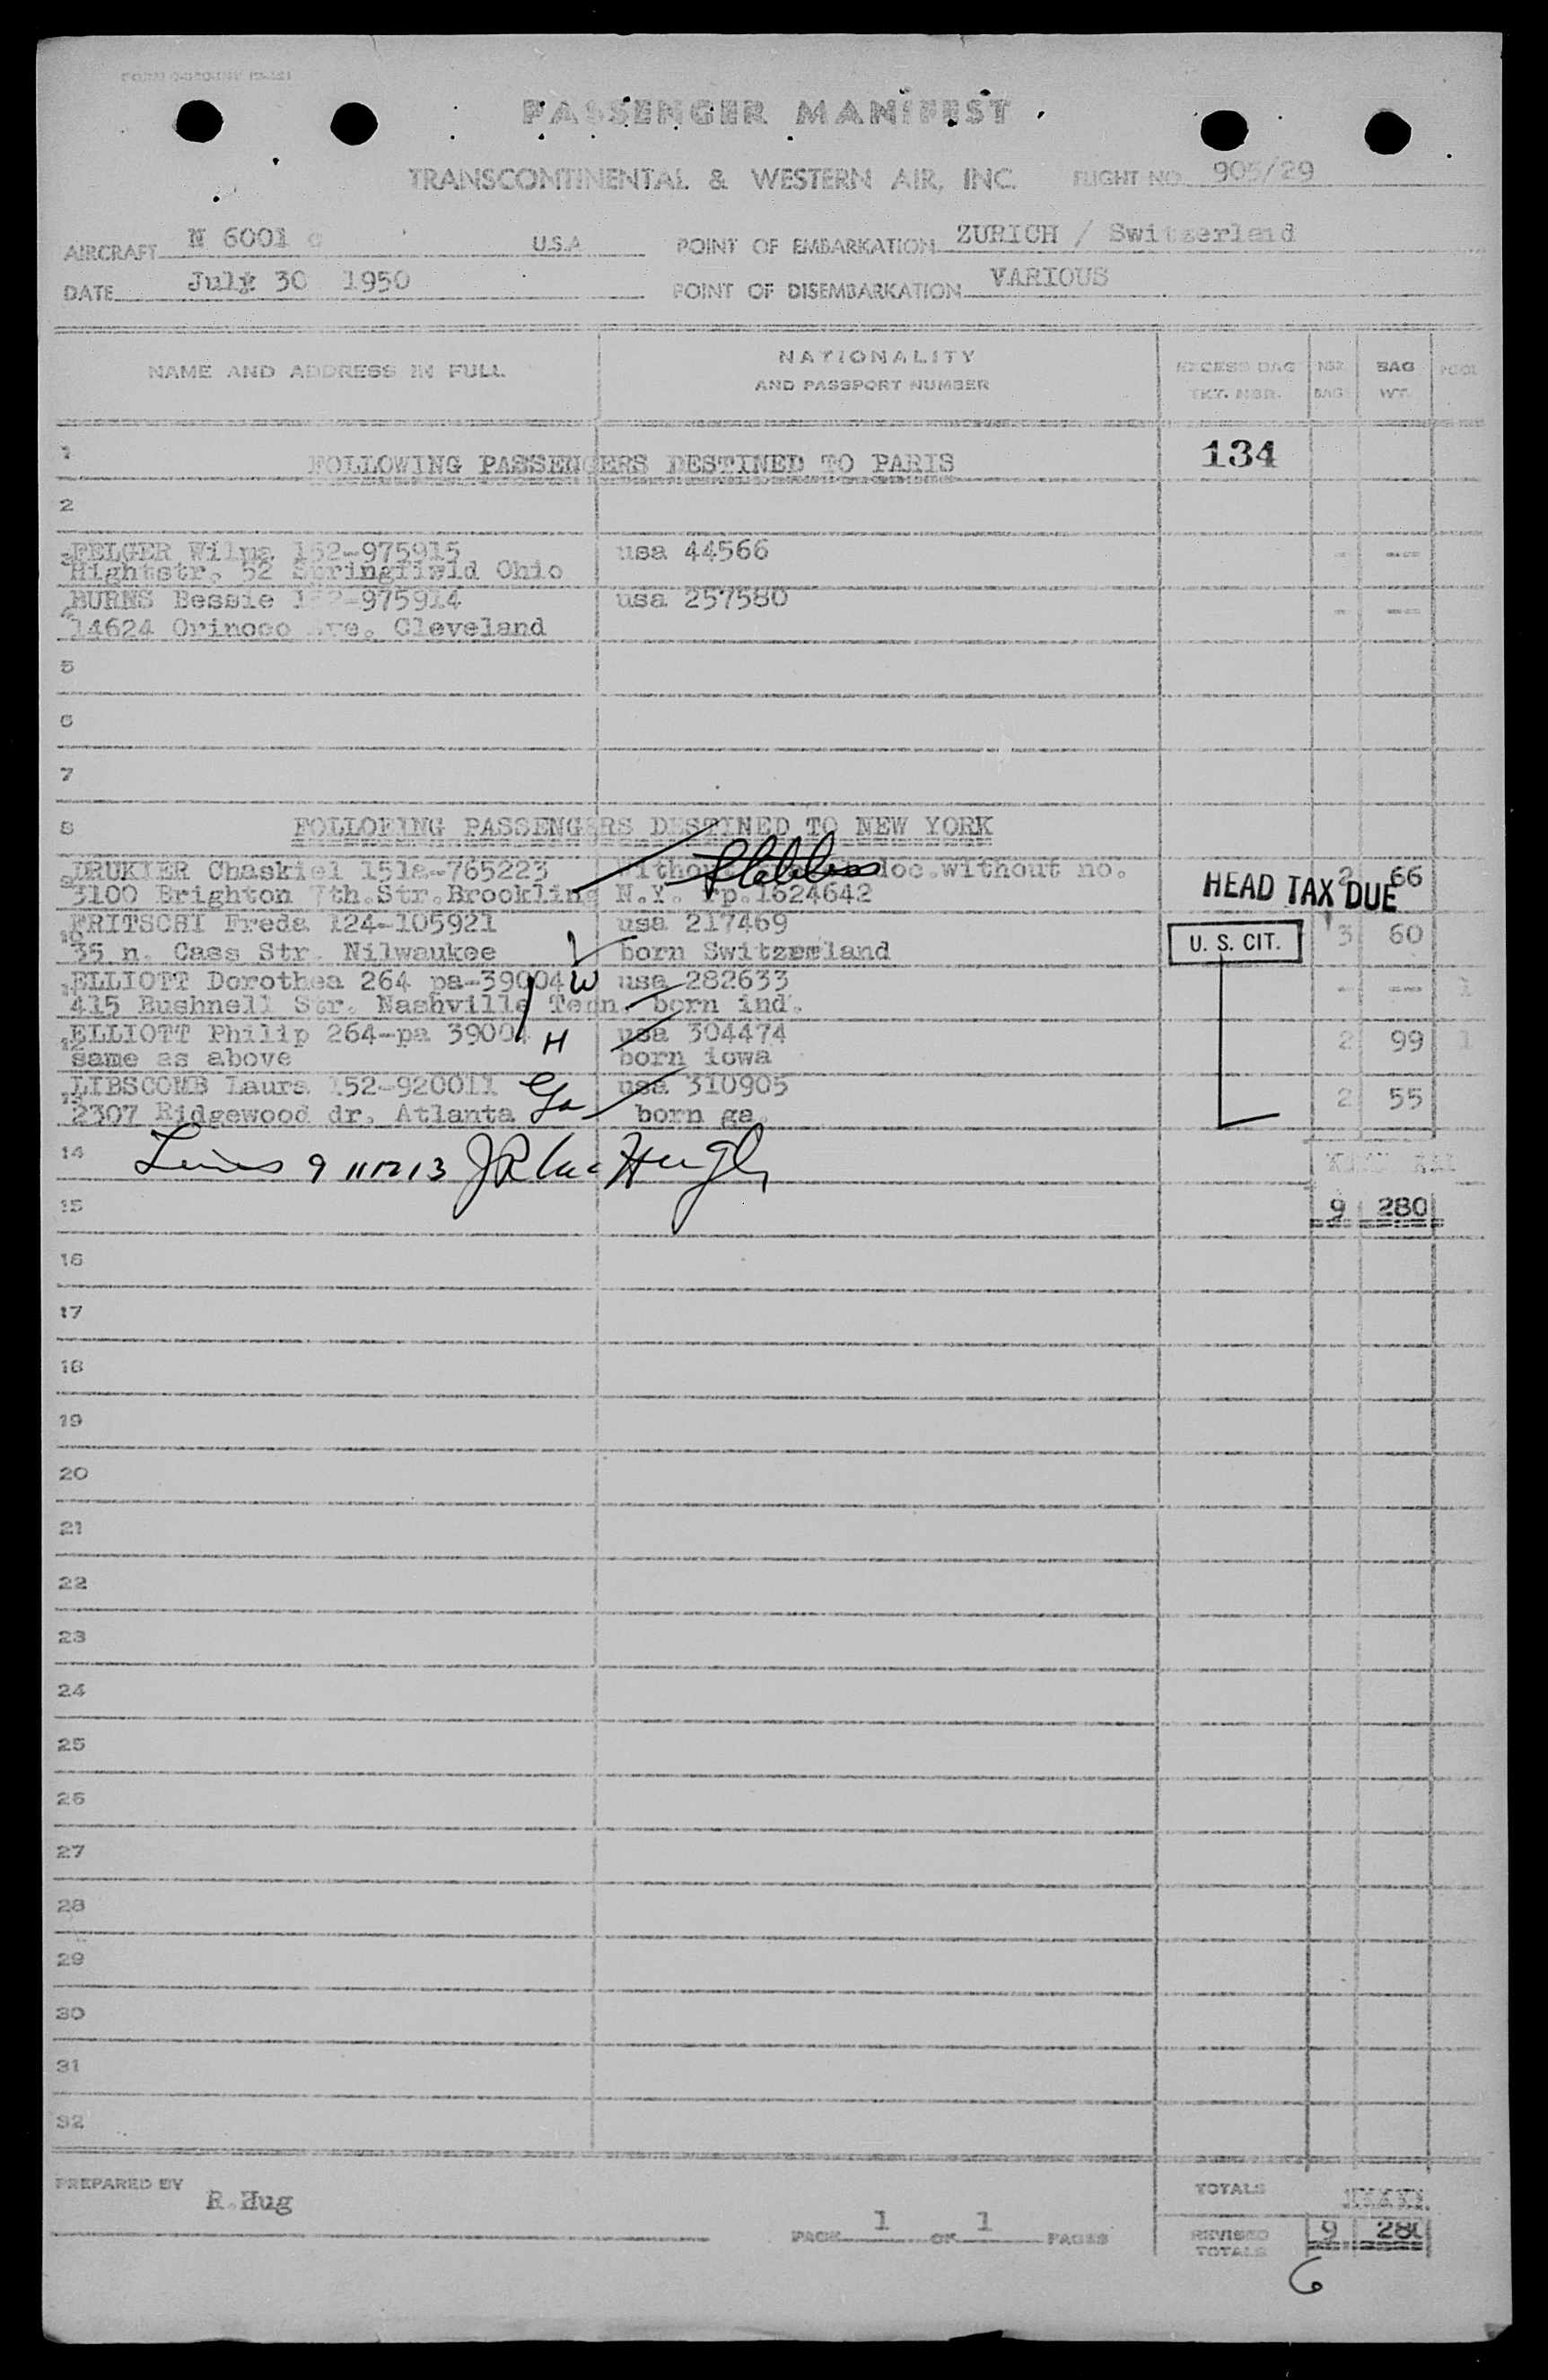 PASSENGER MANIFEST
TRANSCONTINENTAL & WESTERN AIR, INC. FLIGHT NO. 905/29
AIRCRAFT N 6001 c U.S.A. POINT OF EMBARKATION ZURICH / Switzerland
DATE July 30 1950 POINT OF DISEMBARKATION VARIOUS
NAME AND ADDRESS IN FULL NATIONALITY AND PASSPORT NUMBER EXCESS BAG TKT. NBR. NBR. BAGS BAG WT. POOL
1 FOLLOWING PASSENGERS DESTINED TO PARIS 134
2
3 FELGER Wilma 152-975915 usa 44566 - ---
Hightstr. 52 Springfiwld Ohio
4 BURNS Bessie 152-975914 usa 257580 - ---
14624 Orinoco Ave. Cleveland
5
6
7
8 FOLLOFING PASSENGERS DESTINED TO NEW YORK
9 DRUKIER Chaskiel 151a-765223 without Stateless doc.without no. 2 66
3100 Brighton 7th.Str.Brookling N.Y. rp.1624642 HEAD TAX DUE
10 FRITSCHI Freda 124-105921 usa 217469 3 60
35 n. Cass Str. Nilwaukee born Switzerland U. S. CIT.
11 ELLIOTT Dorothea 264 pa-39004 W usa 282633 - --- 1
415 Bushnell Str. Nashville Tenn. born ind.
12 ELLIOTT Philip 264-pa 39004 H usa 304474 2 99 1
same as above born iowa
13 LIBSCOMB Laura 152-920011 usa 310905 2 55
2307 Ridgewood dr. Atlanta Ga born ga.
14 Lines 9 11 12 13 JR McHugh
15 9 280
16
17
18
19
20
21
22
23
24
25
26
27
28
29
30
31
32
PREPARED BY R.Hug TOTALS
PAGE 1 OF 1 PAGES REVISED TOTALS 9 280
6